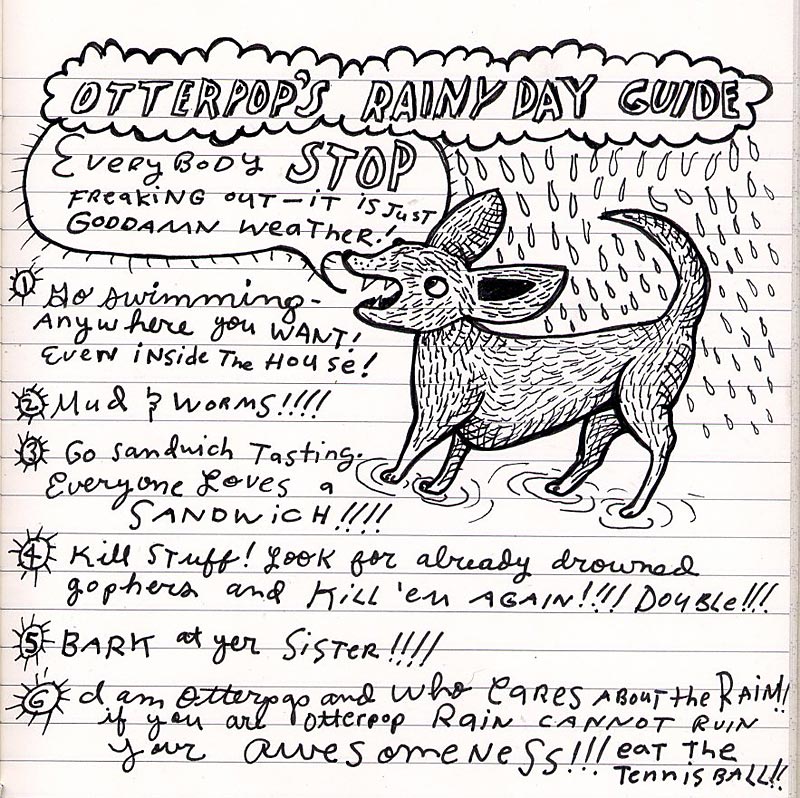 OTTERPOP'S RAINY DAY GUIDE
EveryBODY STOP
FREAKING OUT — IT IS JUST
GODDAMN WeatHer!
1 Go swimming -
Anywhere you WANT!
Even inside The House!
2 Mud & WORMS!!!!
3 Go sandwich Tasting.
Everyone Loves a
SANDWiCH!!!!
4 Kill Stuff! Look for already drowned
gophers and Kill 'em AGAIN!!!! DOUBLE!!!
5 BARK at yer SiSTER!!!!
6 I am Otterpop and Who CARes ABOUT the RAIN!!
if you are Otterpop RAIN CANNOT RUIN
your awesomeness!!! eat The
Tennis BALL!!